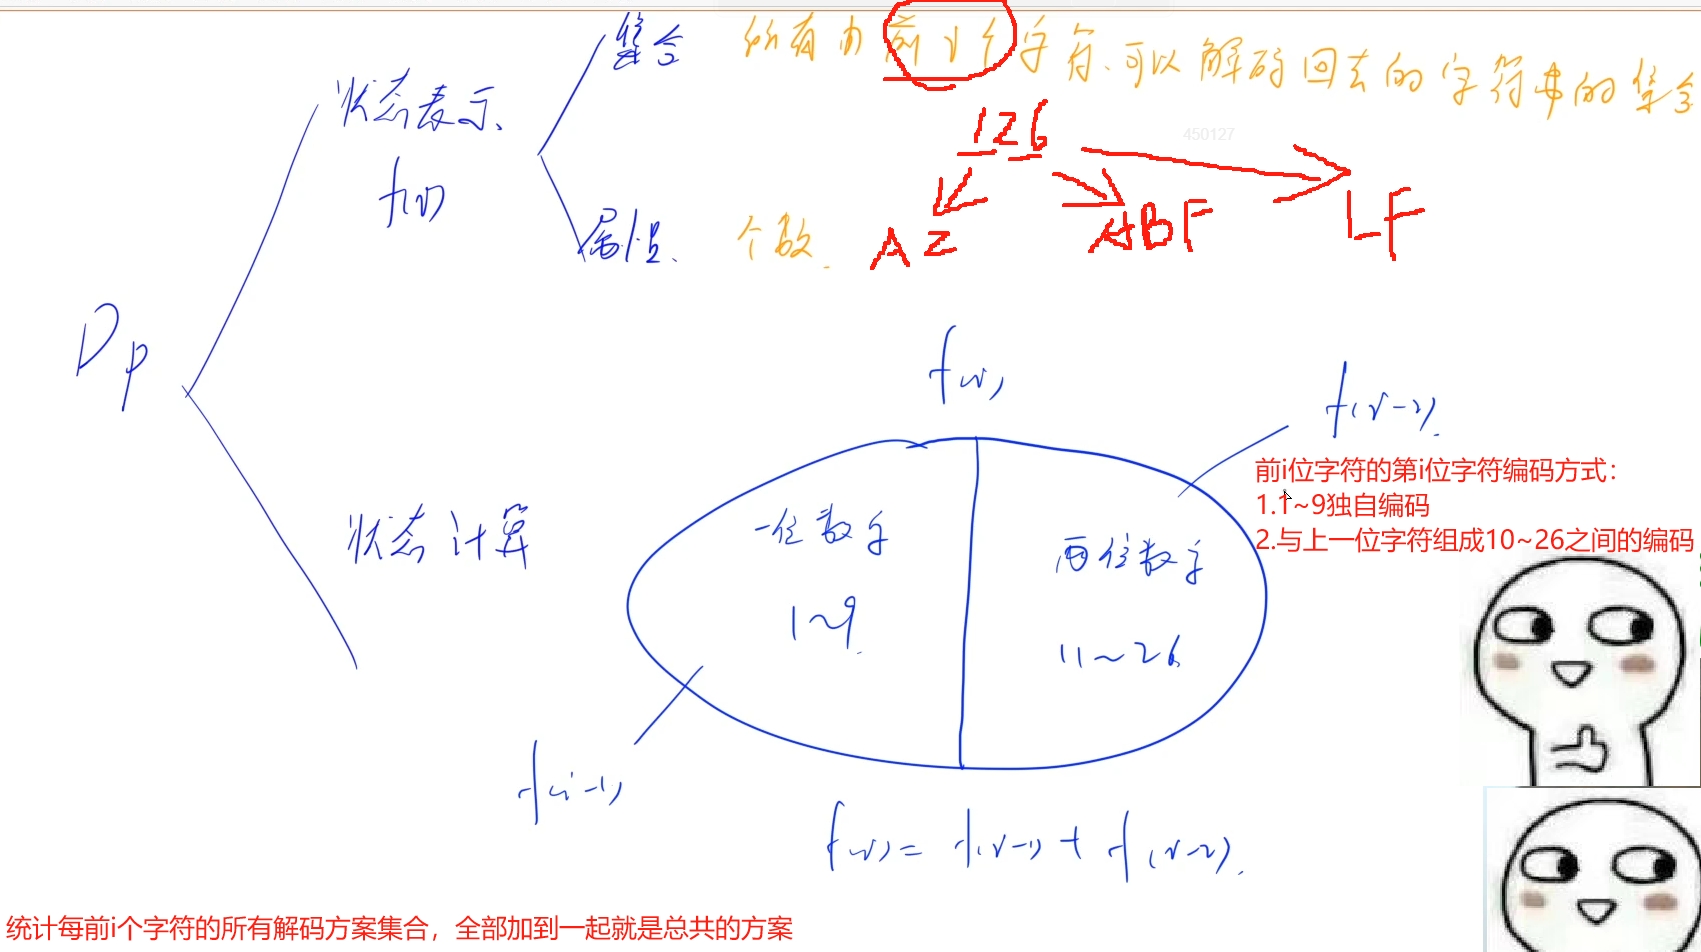 集合 所有由前i个字符、可以解码回去的字符串的集合
状态表示、
126
450127
f(i)
属性、 个数.
AZ ABF LF
Dp
f(i)
f(i-2).
前i位字符的第i位字符编码方式：
1.1~9独自编码
2.与上一位字符组成10~26之间的编码
状态计算
一位数字
1~9.
两位数字
11~26
f(i-1)
f(i) = f(i-1) + f(i-2).
统计每前i个字符的所有解码方案集合，全部加到一起就是总共的方案